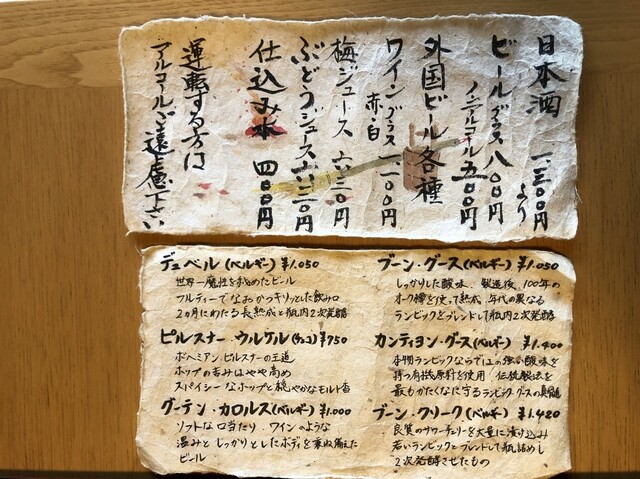 日本酒 一、三〇〇円より
ビール グラス 八〇〇円
ノンアルコール 五〇〇円
外国ビール各種
ワイングラス 赤・白 一一〇〇円
梅ジュース 六三〇円
ぶどうジュース 六三〇円
仕込み水 四〇〇円
運転する方は
アルコールご遠慮下さい
デュベル(ベルギー) ¥1.050
世界一魔性を秘めたビール
フルーティーでなおかつキリッとした飲み口
2ヵ月にわたる長熟成と瓶内2次発酵
ピルスナー・ウルケル(チェコ) ¥750
ボヘミアン・ピルスナーの王道
ホップの苦みはやや高め
スパイシーなホップと穏やかなモルト香
グーデン・カロルス(ベルギー) ¥1.000
ソフトな口当たり ワインのような
温みとしっかりとしたボディを兼ね備えた
ビール
ブーン・グース(ベルギー) ¥1.050
しっかりした酸味、製造後、100年の
オーク樽を使って熟成、年代の異なる
ランビックをブレンドして瓶内2次発酵
カンティヨン・グース(ベルギー) ¥1.400
本物ランビックならではの強い酸味を
持つ有機原料を使用 伝統製法を
最もかたくなに守るランビック・グースの真髄
ブーン・クリーク(ベルギー) ¥1.420
良質のサワーチェリーを大量に漬け込み
若いランビックとブレンドして瓶詰めし
2次発酵させたもの